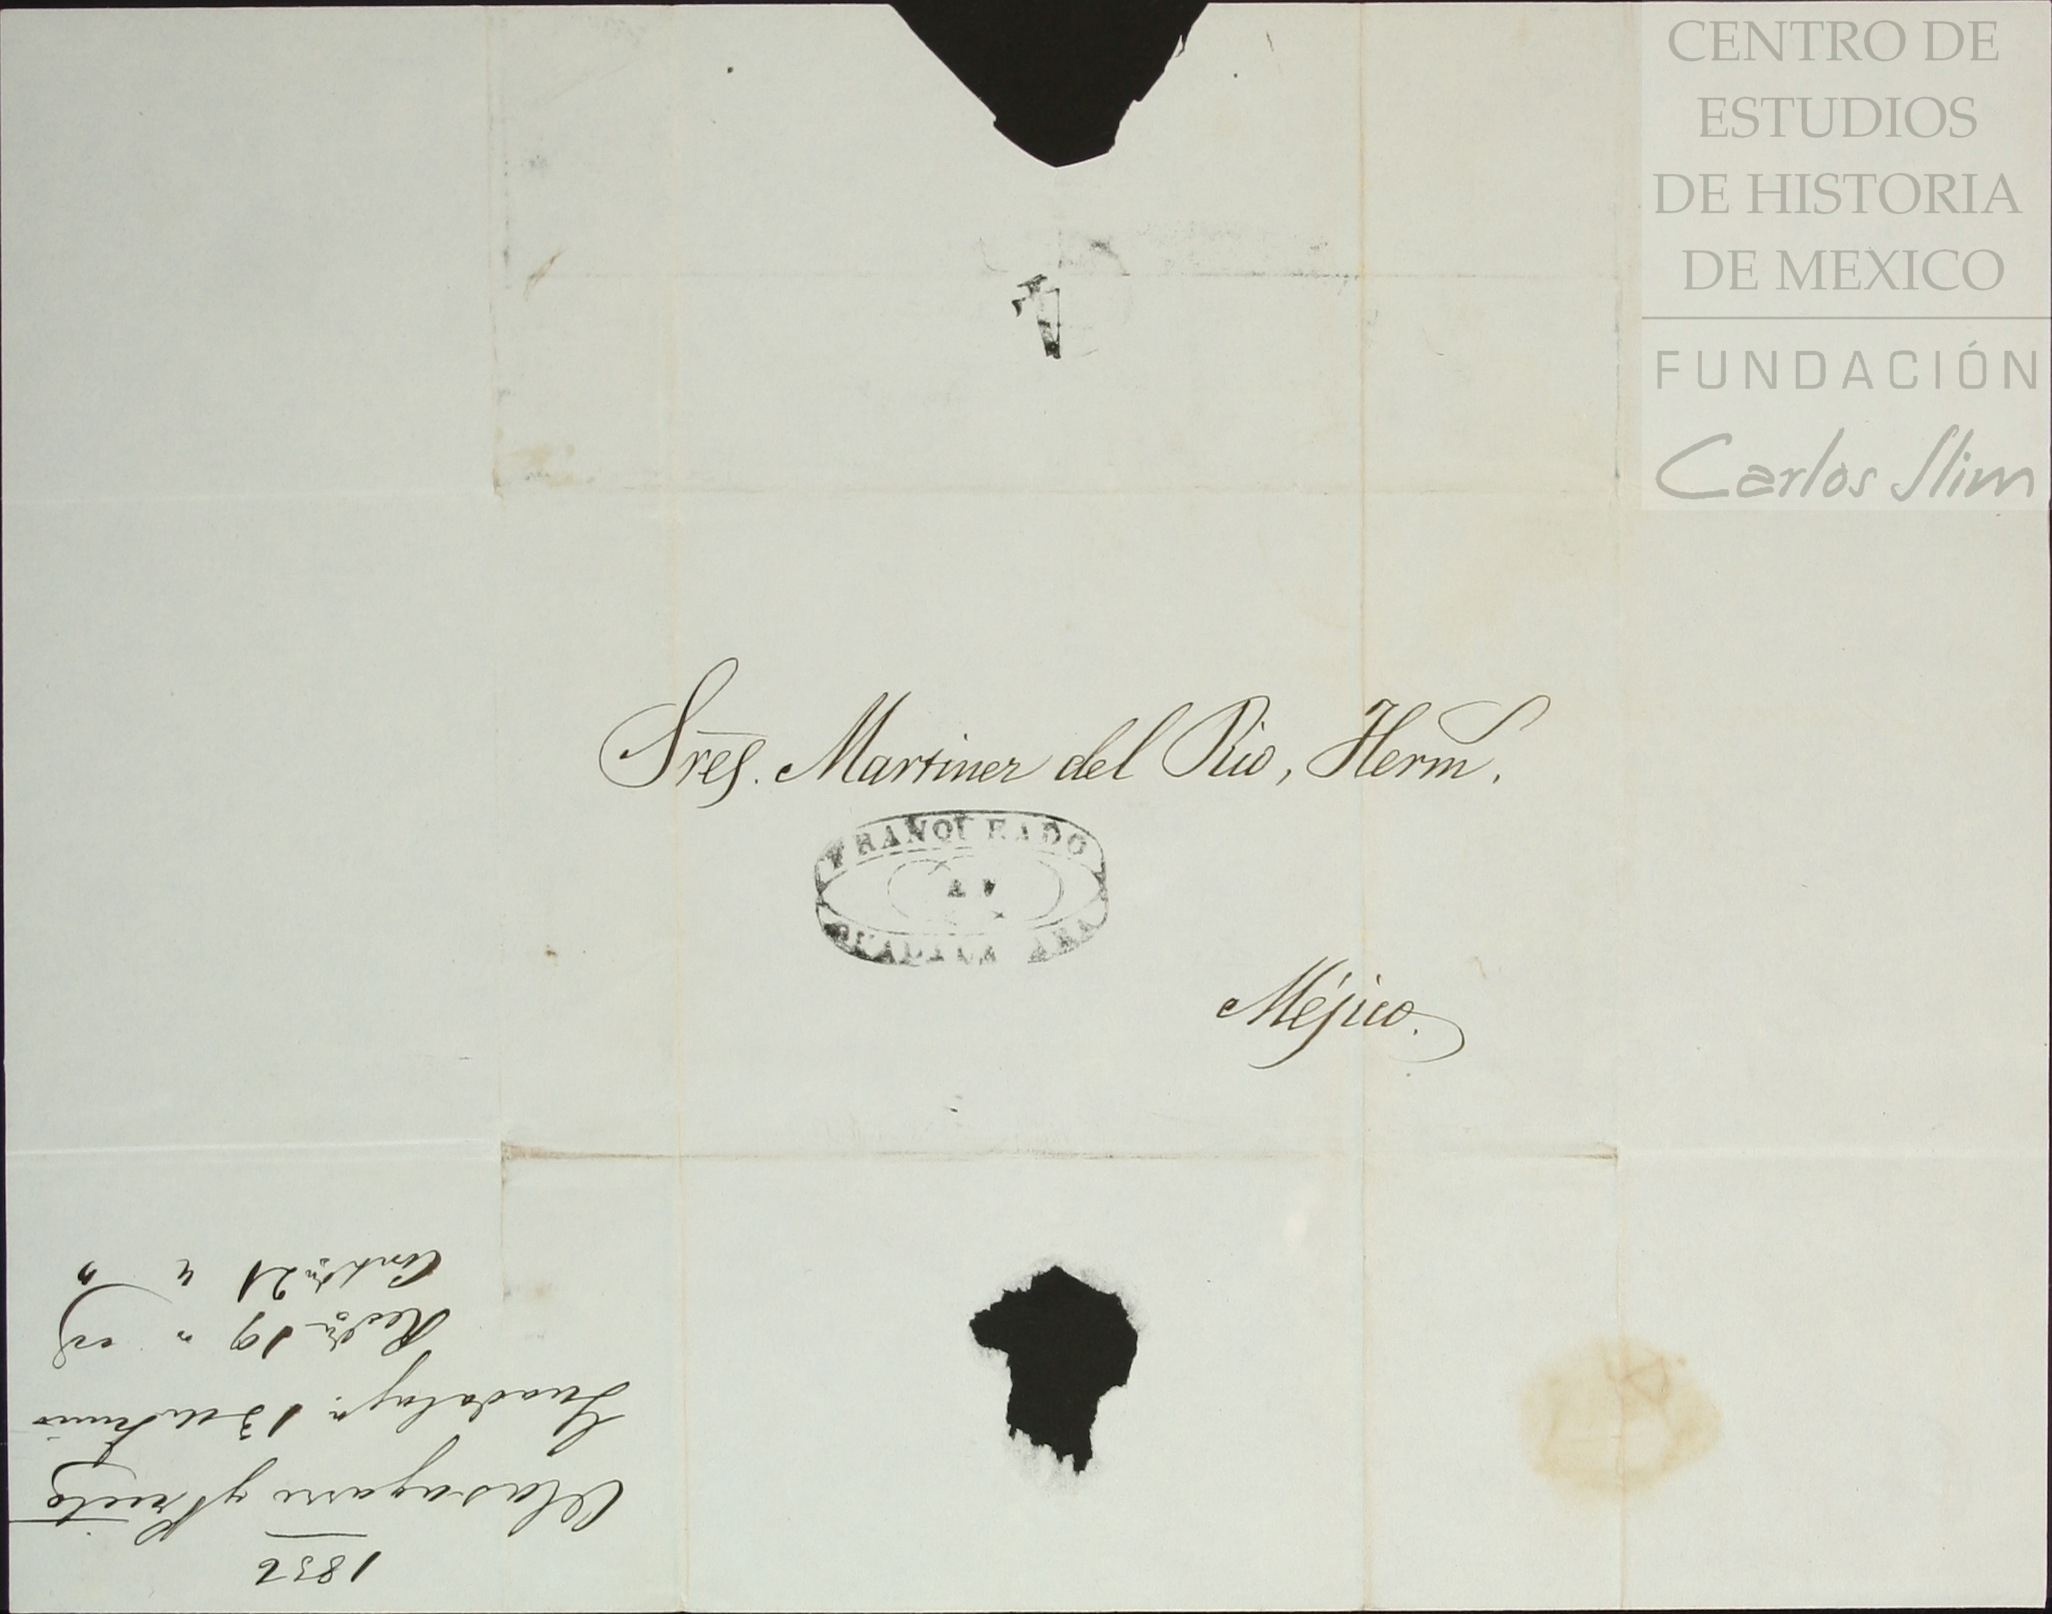 CENTRO DE
ESTUDIOS
DE HISTORIA
DE MEXICO
FUNDACIÓN
Carlos Slim
Sres. Martinez del Rio, Herms.
FRANQUEADO
EN
GUADALAJARA
Méjico.
1852
Olasagarre y Prieto
Guadalaja. 13 de Junio
Recda 19 " id
Contda 21 " "